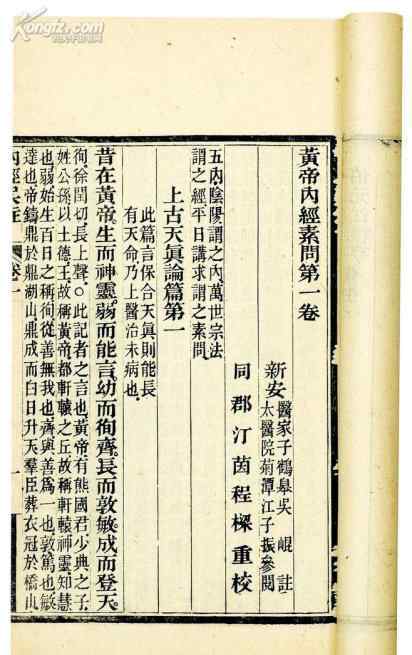 Kongfz.com
黃帝內經素問第一卷
新安
醫家子鶴皋吳崐註
太醫院菊潭江子振參閱
同郡汀茵程樑重校
五內陰陽謂之內萬世宗法
謂之經平日講求謂之素問
上古天眞論篇第一
此篇言保合天眞則能長
有天命乃上醫治未病也
昔在黃帝生而神靈弱而能言幼而徇齊長而敦敏成而登天
徇徐閏切長上聲○此記者之言也黃帝有熊國君少典之子
姓公孫以土德王故稱黃帝都軒轅之丘故稱軒轅神靈知慧
也弱始生百日之稱徇從善無我也齊與善爲一也敦篤也敏
達也帝鑄鼎於鼎湖山鼎成而白日升天羣臣葬衣冠於橋山
內經吳註
卷一
一